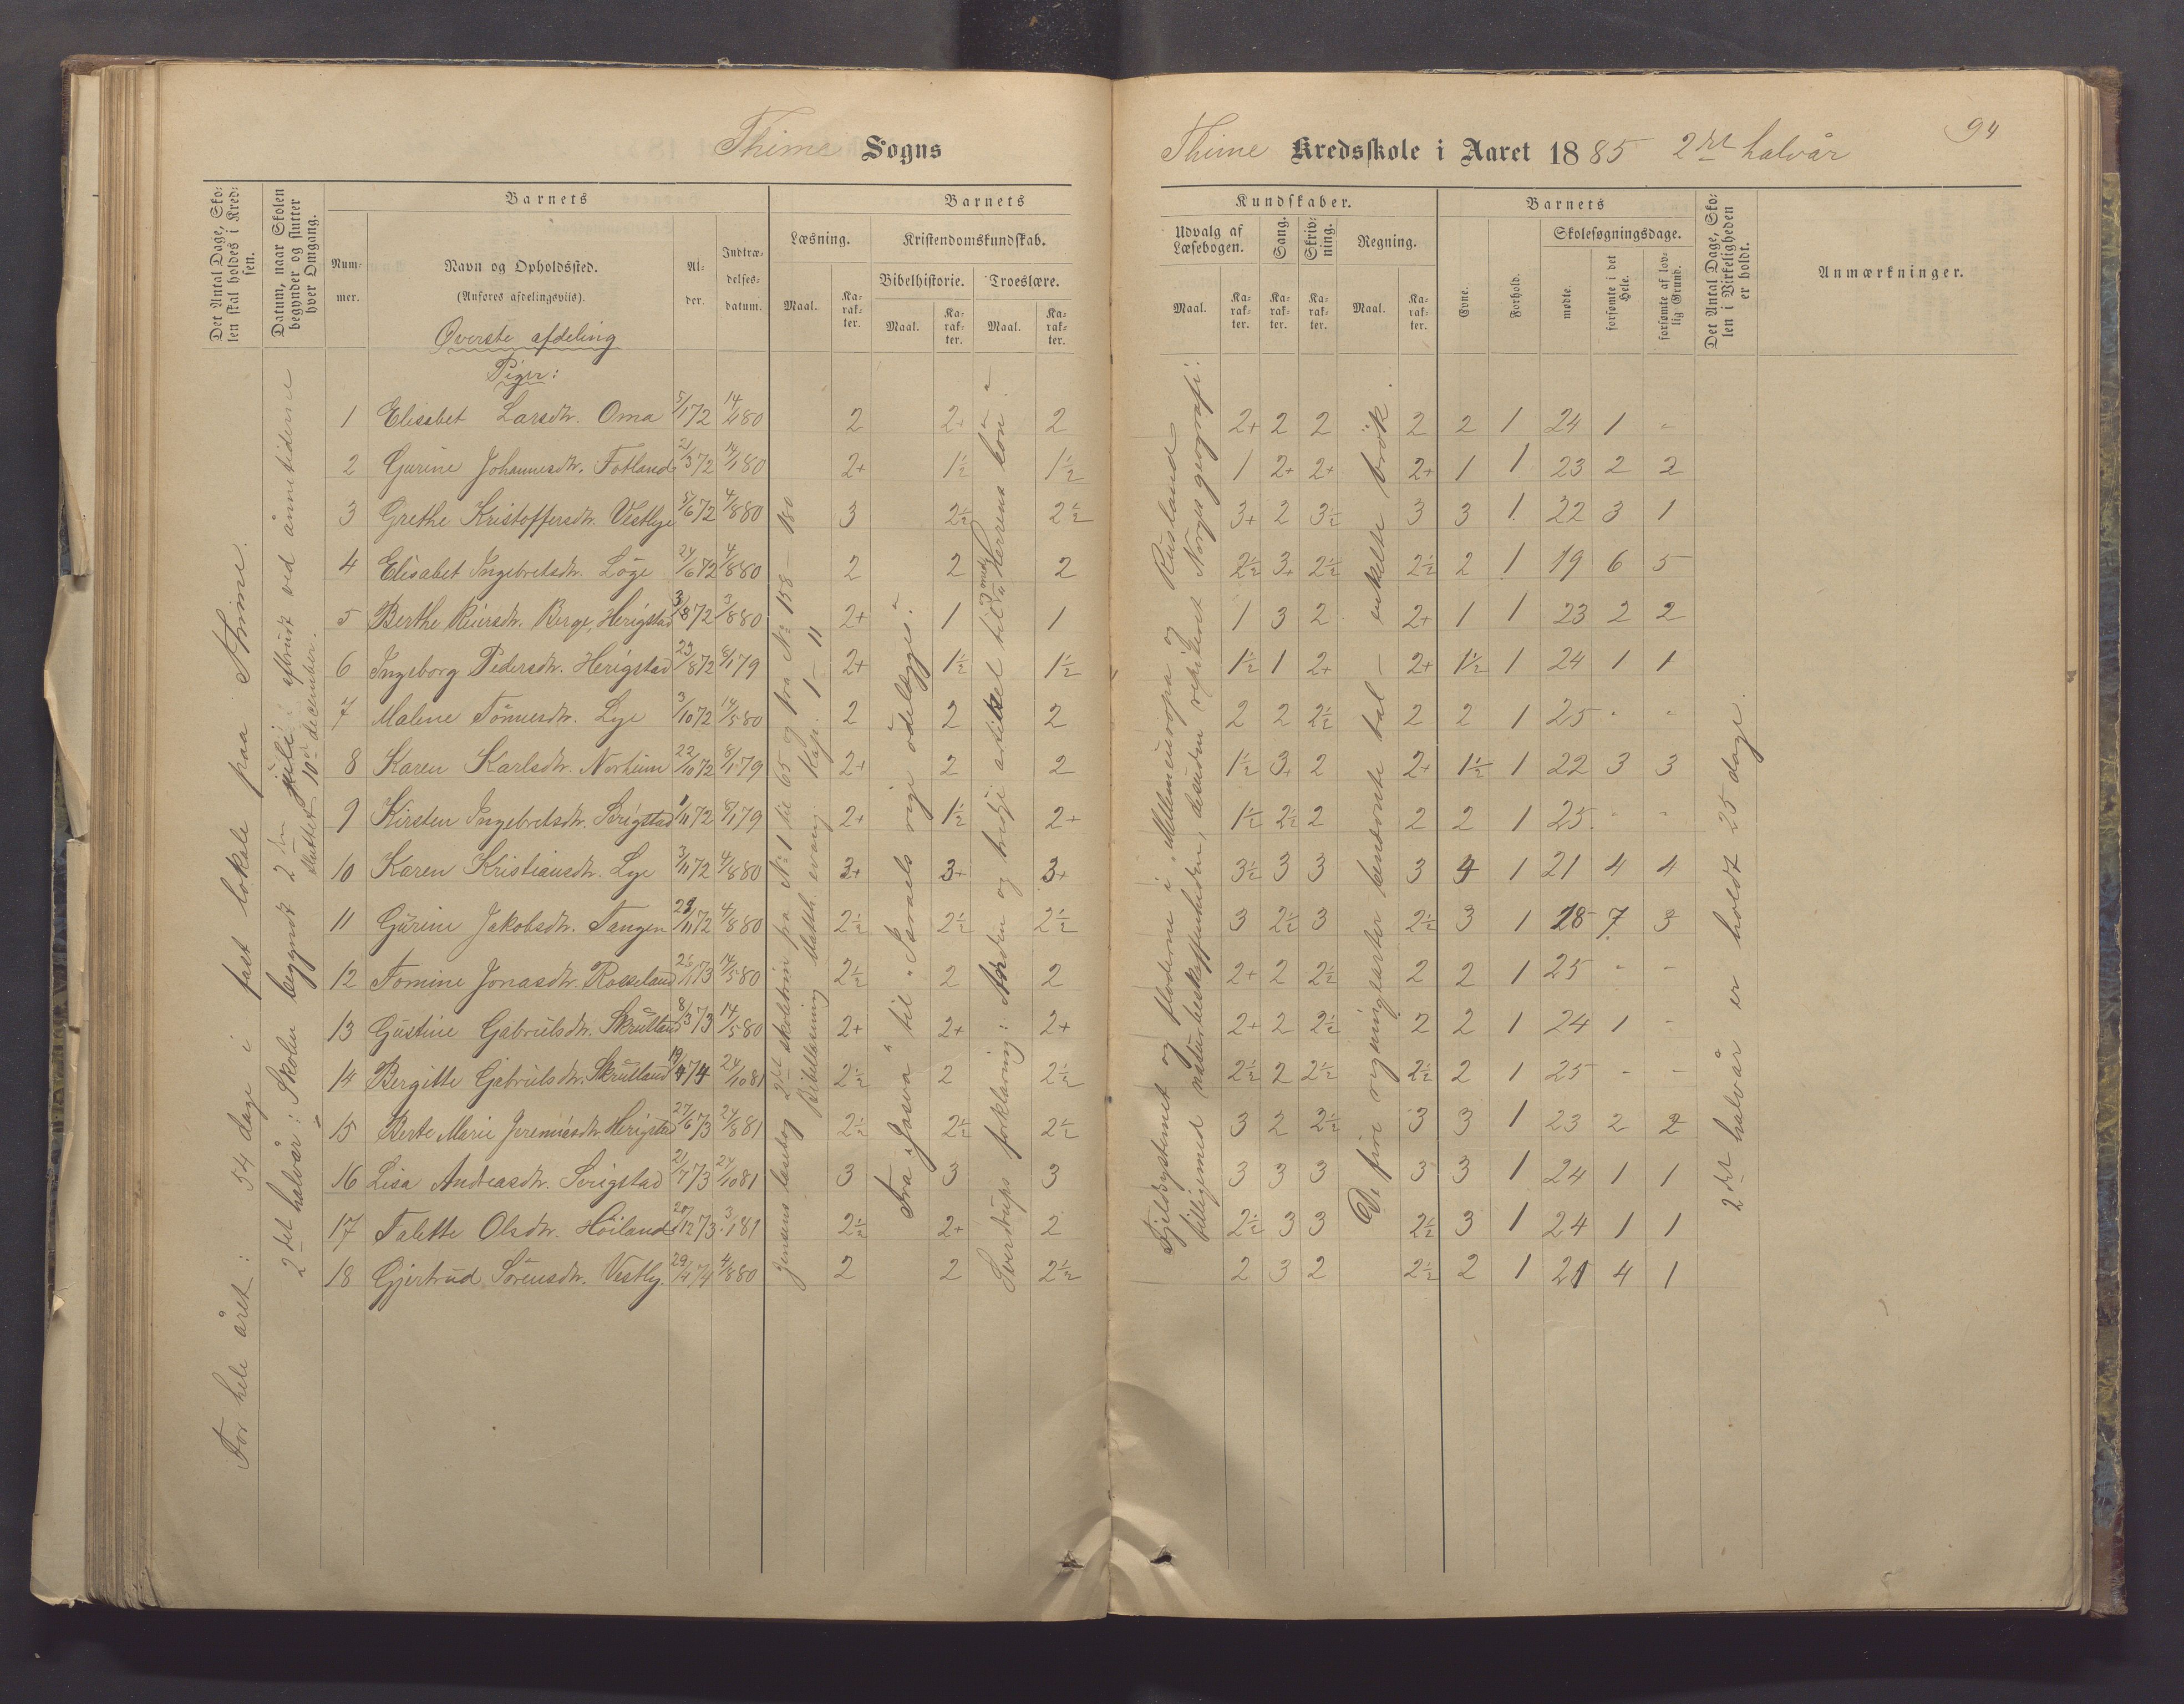 Thime Sogns
Thime Kredsskole i Aaret 1885 2det halvår
94
Det Antal Dage, Sko-
len skal holdes i Kred-
sen.
Datum, naar Skolen
begynder og slutter
hver Omgang.
Barnets
Num-
mer.
Navn og Opholdssted.
(Anføres afdelingsviis).
Al-
der.
Indtræ-
delses-
datum.
Barnets
Læsning.
Kristendomskundskab.
Bibelhistorie. Troeslære.
Maal.
Ka-
rak-
ter.
Maal.
Ka-
rak-
ter.
Maal.
Ka-
rak-
ter.
Kundskaber.
Udvalg af
Læsebogen.
Sang.
Skriv-
ning.
Regning.
Maal.
Ka-
rak-
ter.
Ka-
rak-
ter.
Ka-
rak-
ter.
Maal.
Ka-
rak-
ter.
Barnets
Evne.
Forhold.
Skolesøgningsdage.
mødte.
forsømte i det
Hele.
forsømte af lov-
lig Grund.
Det Antal Dage, Sko-
len i Virkeligheden
er holdt.
Anmærkninger.
Øverste afdeling
Piger:
For hele året: 54 dage i fast lokale paa Thime.
2det halvår: Skolen begyndt 2den juli; afbrudt ved ånnetiderne
sluttet 10de december.
Jensens læsebog 2det skoletrin fra No 1 til 65 og fra No 158 – 180
Bibellæsning Matth. evang. Kap. 1 – 11
Fra "Josva" til "Israels rige ödelægges".
Sverdrups forklaring: Anden og tredje artikel til "Herrens bön".
Fjeldsystemet og floderne i Mellemeuropa og Rusland
tilligemed naturbeskaffenheden, desuden repeteret Norges geografi.
De fire regningsarter benævnte tal – enkelte brök.
2det halvår er holdt 25 dage.
1 Elisabet Larsdtr. Oma 5/1 72 14/4 80 2 2+ 2 2+ 2 2 2 2 1 24 1 -
2 Gurine Johannesdtr. Fotland 21/3 72 14/1 80 2+ 1½ 1½ 1 2+ 2+ 2+ 1 1 23 2 2
3 Grethe Kristoffersdtr. Vestlye 5/6 72 4/8 80 3 2½ 2½ 3+ 2 3½ 3 3 1 22 3 1
4 Elisabet Ingebretsdtr. Löge 24/6 72 4/8 80 2 2 2 2½ 3+ 2½ 2½ 2 1 19 6 5
5 Berthe Reiersdtr. Berge, Herigstad 3/8 72 3/8 80 2+ 1 1 1 3 2 2+ 1 1 23 2 2
6 Ingeborg Pedersdtr. Herigstad 23/8 72 8/1 79 2+ 1½ 1½ 1½ 1 2+ 2+ 1½ 1 24 1 1
7 Malene Tönnesdtr. Lye 3/10 72 14/5 80 2 2 2 2 2 2½ 2 2 1 25 - -
8 Karen Karlsdtr. Norheim 22/10 72 8/1 79 2+ 2 2 1½ 3+ 2 2+ 1½ 1 22 3 3
9 Kirsten Ingebretsdtr. Serigstad 1/11 72 8/1 79 2+ 1½ 2+ 1½ 2½ 2 2 2 1 25 - -
10 Karen Kristiansdtr. Lye 3/11 72 4/8 80 3+ 3+ 3+ 3½ 3 3 3 4 1 21 4 4
11 Gurine Jakobsdtr. Tangen 28/11 72 4/8 80 2½ 2½ 2½ 3 2½ 3 2½ 3 1 18 7 3
12 Tomine Jonasdtr. Rosseland 26/1 73 14/5 80 2½ 2 2 2+ 2 2½ 2 2 1 25 - -
13 Gustine Gabrielsdtr. Skrulland 8/3 73 14/5 80 2+ 2+ 2+ 2+ 2 2½ 2 2 1 24 1 -
14 Bergitte Gabrielsdtr. Skrulland 19/4 74 24/10 81 2½ 2 2½ 2½ 2 2½ 2½ 2 1 25 - -
15 Berte Marie Jeremiasdtr. Herigstad 27/6 73 24/8 81 2½ 2½ 2½ 3 2 2½ 3 3 1 23 2 2
16 Lisa Andreasdtr. Serigstad 21/7 73 24/10 81 3 3 3 3 3 3 3 3 1 24 1 1
17 Talette Olsdtr. Höiland 20/12 73 3/1 81 2½ 2+ 2 2½ 3 3 2½ 3 1 24 1 1
18 Gjertrud Sörensdtr. Vestly. 29/4 74 4/8 80 2 2 2½ 2 3 2 2½ 2 1 21 4 1